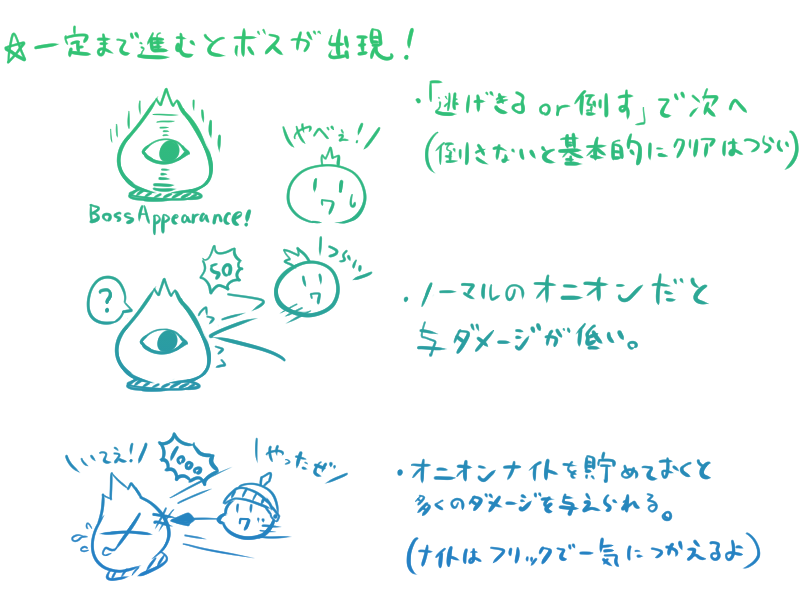 ☆一定まで進むとボスが出現！
・「逃げきる or 倒す」で次へ
(倒さないと基本的にクリアはつらい)
\やべぇ!/
Boss Appearance!
50
\つらい/
?
・ノーマルのオニオンだと
与ダメージが低い。
\いてえ!/
1000
\やったぜ/
・オニオンナイトを貯めておくと
多くのダメージを与えられる。
(ナイトはフリックで一気につかえるよ)